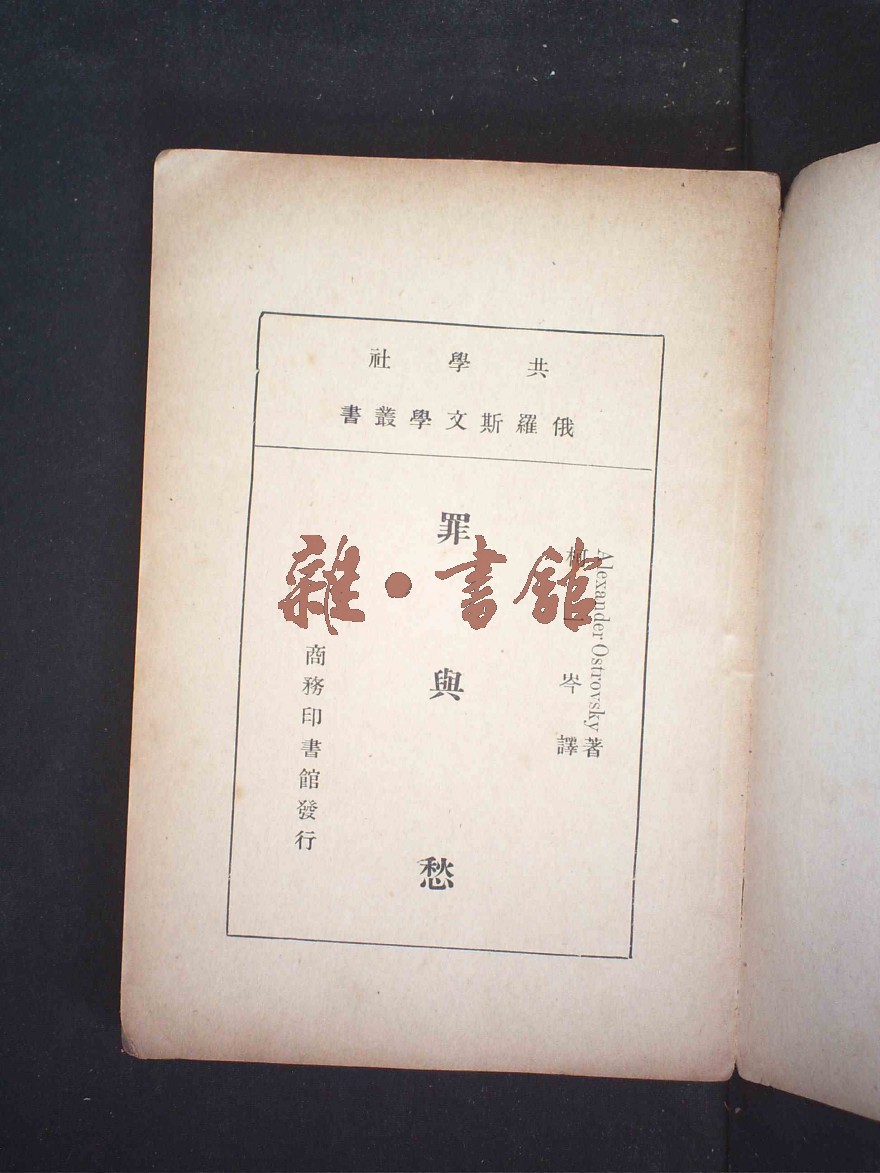 共學社
俄羅斯文學叢書
Alexander Ostrovsky 著
柯一岑譯
罪與愁
商務印書館發行
雜·書館